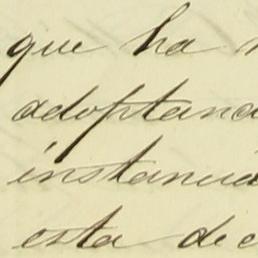 que ha
adoptand
instancia
esta de